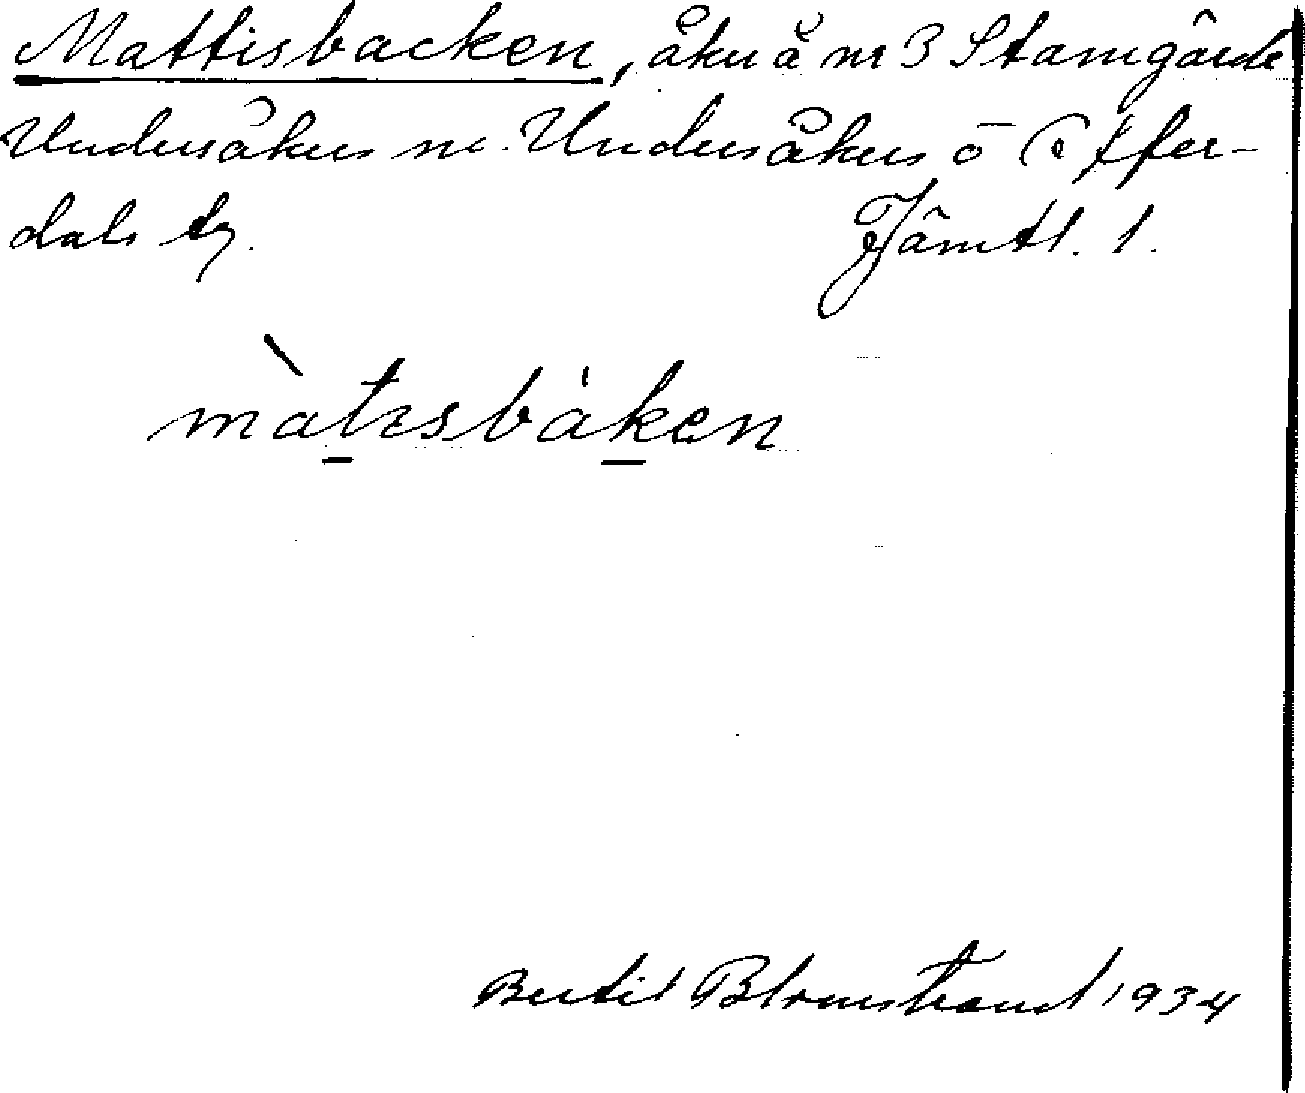 Mattisbacken, åker å nr 3 Stamgärde
Undersåkers sn. Undersåkers o Offer-
dals tg. Jämtl. l.
màtısbàken
Bertil Blomstrand 1934